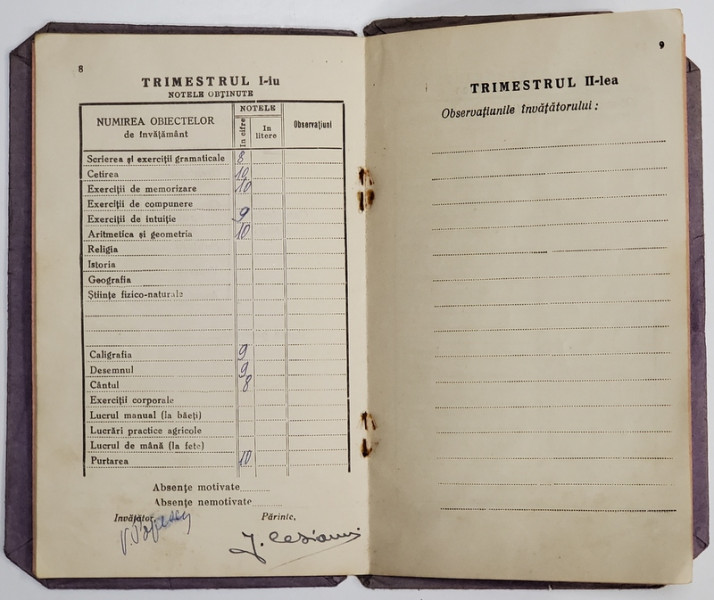 8
TRIMESTRUL I-iu
NOTELE OBȚINUTE
NUMIREA OBIECTELOR
de învățământ
NOTELE
In cifre
In
litere
Observațiuni
Scrierea și exerciții gramaticale 8
Cetirea 10
Exerciții de memorizare 10
Exerciții de compunere
Exerciții de intuiție 9
Aritmetica și geometria 10
Religia
Istoria
Geografia
Științe fizico-naturale
Caligrafia 9
Desemnul 9
Cântul 8
Exerciții corporale
Lucrul manual (la băeți)
Lucrări practice agricole
Lucrul de mână (la fete)
Purtarea 10
Absențe motivate
Absențe nemotivate
Invățător, Părinte,
V. Popescu
9
TRIMESTRUL II-lea
Observațiunile învățătorului :